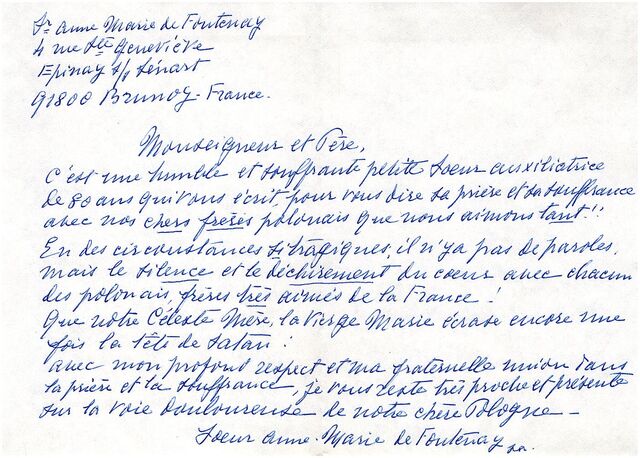 Sr Anne Marie de Fontenay
4 rue Ste Geneviève
Epinay s/s Sénart
91800 Brunoy - France.
Monseigneur et Père,
C'est une humble et souffrante petite soeur auxiliatrice
de 80 ans qui vous écrit, pour vous dire sa prière et sa souffrance
avec nos chers frères polonais que nous aimons tant !!
En des circonstances si tragiques, il n'y a pas de paroles,
mais le silence et le déchirement du coeur avec chacun
des polonais, frères très aimés de la France !
Que notre Céleste Mère, la Vierge Marie écrase encore une
fois la tête de Satan !
avec mon profond respect et ma fraternelle union dans
la prière et la souffrance, je vous reste très proche et présente
sur la voie douloureuse de notre chère Pologne -
Soeur Anne-Marie de Fontenay